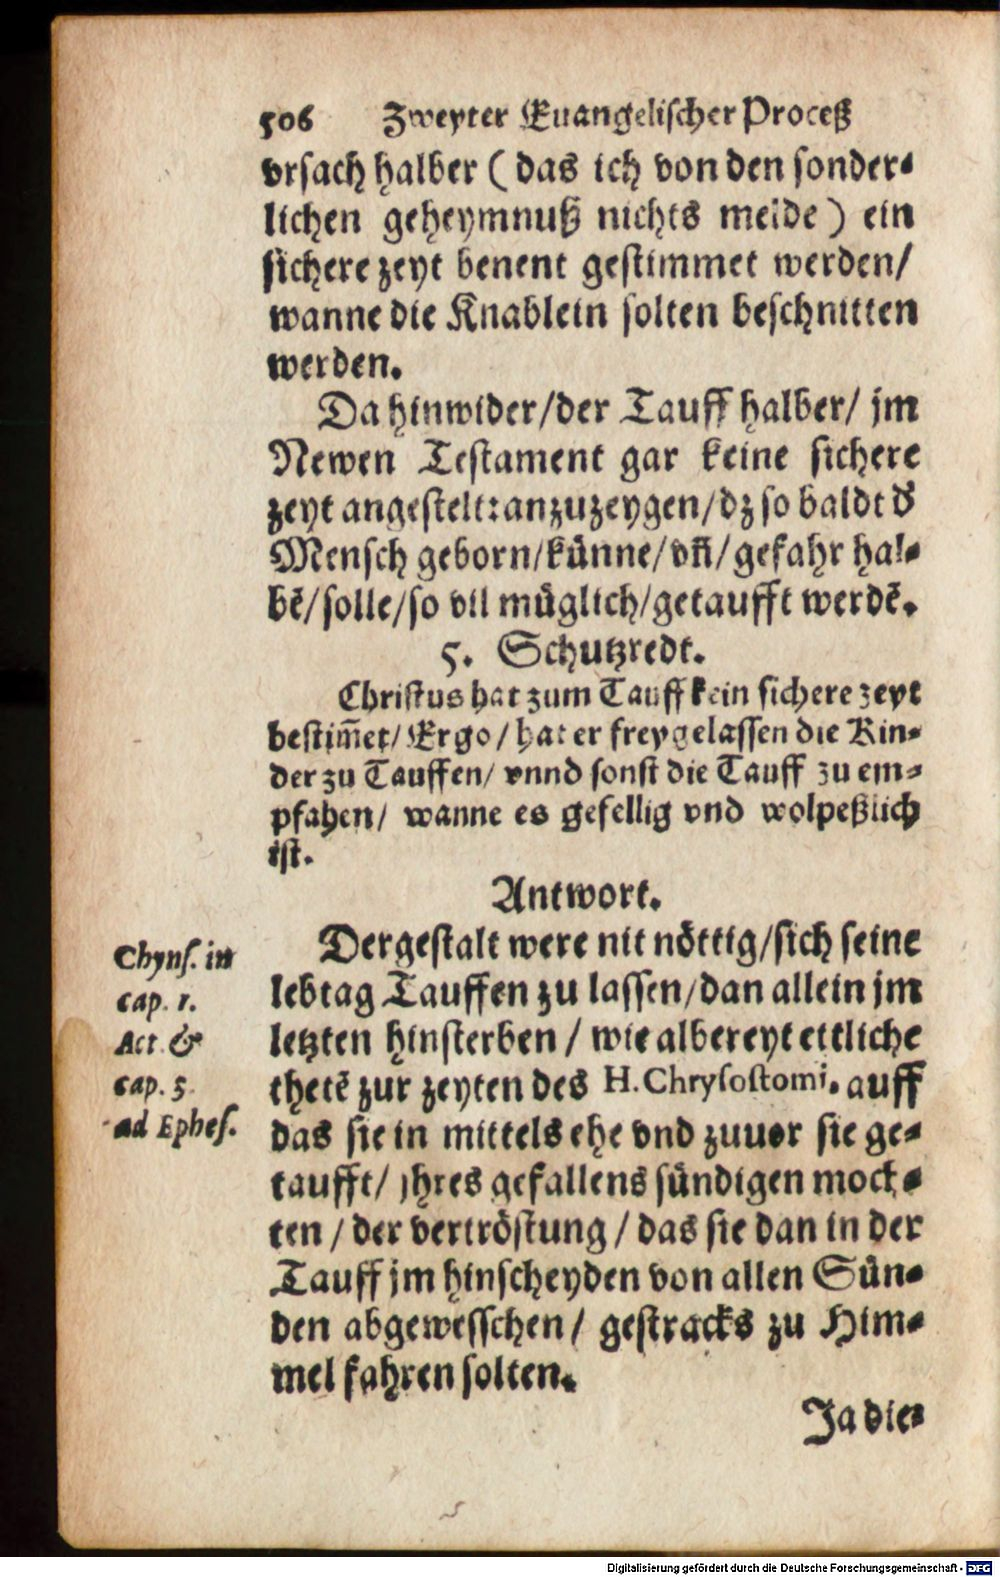 506 Zweyter Euangelischer Proceß
vrsach halber (das ich von den sonder-
lichen geheymnuß nichts melde) ein
sichere zeyt benent gestimmet werden/
wanne die Knablein solten beschnitten
werden.
Da hinwider/der Tauff halber/ jm
Newen Testament gar keine sichere
zeyt angestelt: anzuzeygen/dz so baldt d'
Mensch geborn/künne/vñ/gefahr hal-
bẽ/solle/so vil müglich/getaufft werdẽ.
5. Schutzredt.
Christus hat zum Tauff kein sichere zeyt
bestim̃et/ Ergo/ hat er freygelassen die Kin-
der zu Tauffen/ vnnd sonst die Tauff zu em-
pfahen/ wanne es gefellig vnd wolpeßlich
ist.
Antwort.
Dergestalt were nit nöttig/sich seine
lebtag Tauffen zu lassen/dan allein jm
letzten hinsterben / wie albereyt ettliche
thetẽ zur zeyten des H. Chrysostomi. auff
das sie in mittels ehe vnd zuuor sie ge-
taufft/ jhres gefallens sündigen moch-
ten / der vertröstung / das sie dan in der
Tauff jm hinscheyden von allen Sün-
den abgewesschen/ gestracks zu Him-
mel fahren solten.
Ja die-
Chyns. in
cap. 1.
Act. &
cap. 5
ad Ephes.
Digitalisierung gefördert durch die Deutsche Forschungsgemeinschaft - DFG